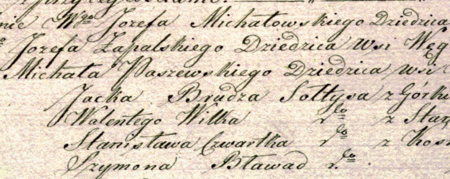 nie W^go Jozefa Michałowskiego Dziedzica
Jozefa Zapalskiego Dziedzica wsi Węg
Michała Paszewskiego Dziedzica wsi
Jacka Brudza Sołtysa z Gorki
Walentego Wilka r^go z Star
Stanisława Czwartka r^go z Kosm
Szymona Bławad r^go.